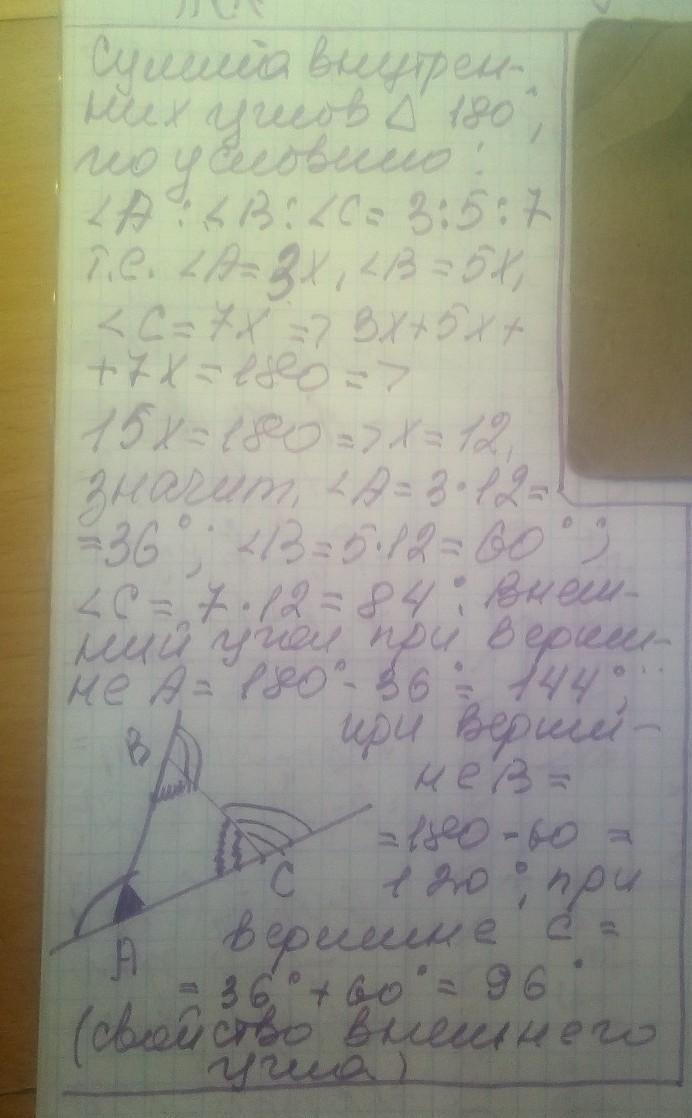 Сумма внутрен-
них углов △ 180°,
по условию:
∠A : ∠B : ∠C = 3:5:7
т.е. ∠A = 3x, ∠B = 5x,
∠C = 7x => 3x+5x+
+7x = 180 =>
15x = 180 => x = 12,
значит, ∠A = 3·12=
=36°; ∠B = 5·12 = 60°;
∠C = 7·12 = 84°. Внеш-
ний угол при верши-
не A = 180° - 36° = 144°;
при верши-
не B =
=180-60 =
120°, при
вершине C =
= 36° + 60° = 96°
(свойство внешнего
угла)
B
C
A